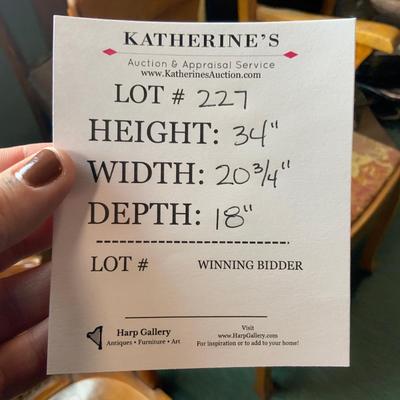 KATHERINE'S
Auction & Appraisal Service
www.KatherinesAuction.com
LOT # 227
HEIGHT: 34"
WIDTH: 20 3/4"
DEPTH: 18"
LOT # WINNING BIDDER
Harp Gallery
Antiques • Furniture • Art
Visit
www.HarpGallery.com
For inspiration or to add to your home!